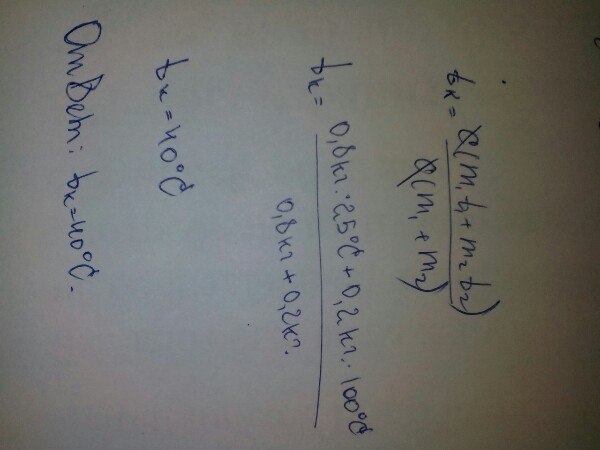 tк = c(m₁t₁ + m₂t₂) / c(m₁ + m₂)
tк = 0,8кг·25°C + 0,2кг·100°C / 0,8кг + 0,2кг.
tк = 40°C
Ответ: tк = 40°C.